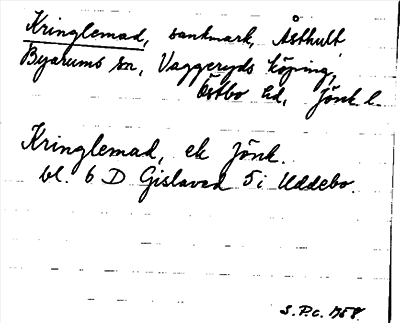 Kringlemad, sankmark, Åsthult
Byarums sn, Vaggeryds köping,
Östbo hd, Jönk. l.
Kringlemad, ek Jönk.
bl. 6 D Gislaved 5i Uddebo.
S. P. c. 1958.